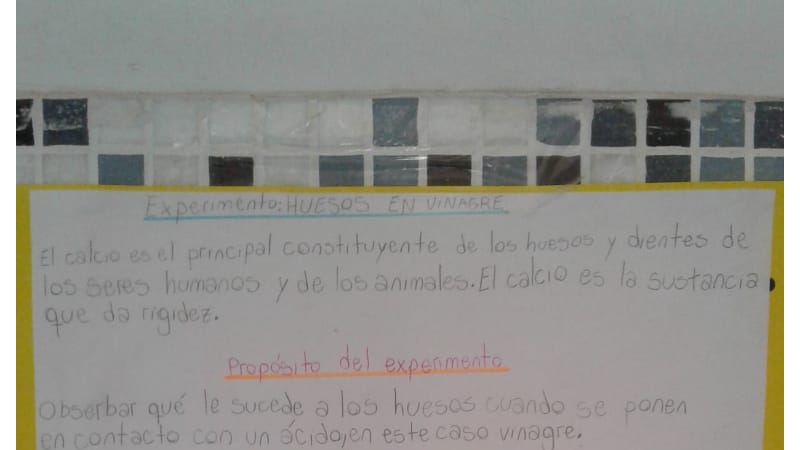 Experimento: HUESOS EN VINAGRE
El calcio es el principal constituyente de los huesos y dientes de
los seres humanos y de los animales. El calcio es la sustancia
que da rigidez.
Propósito del experimento
Obserbar qué le sucede a los huesos cuando se ponen
en contacto con un ácido, en este caso vinagre.